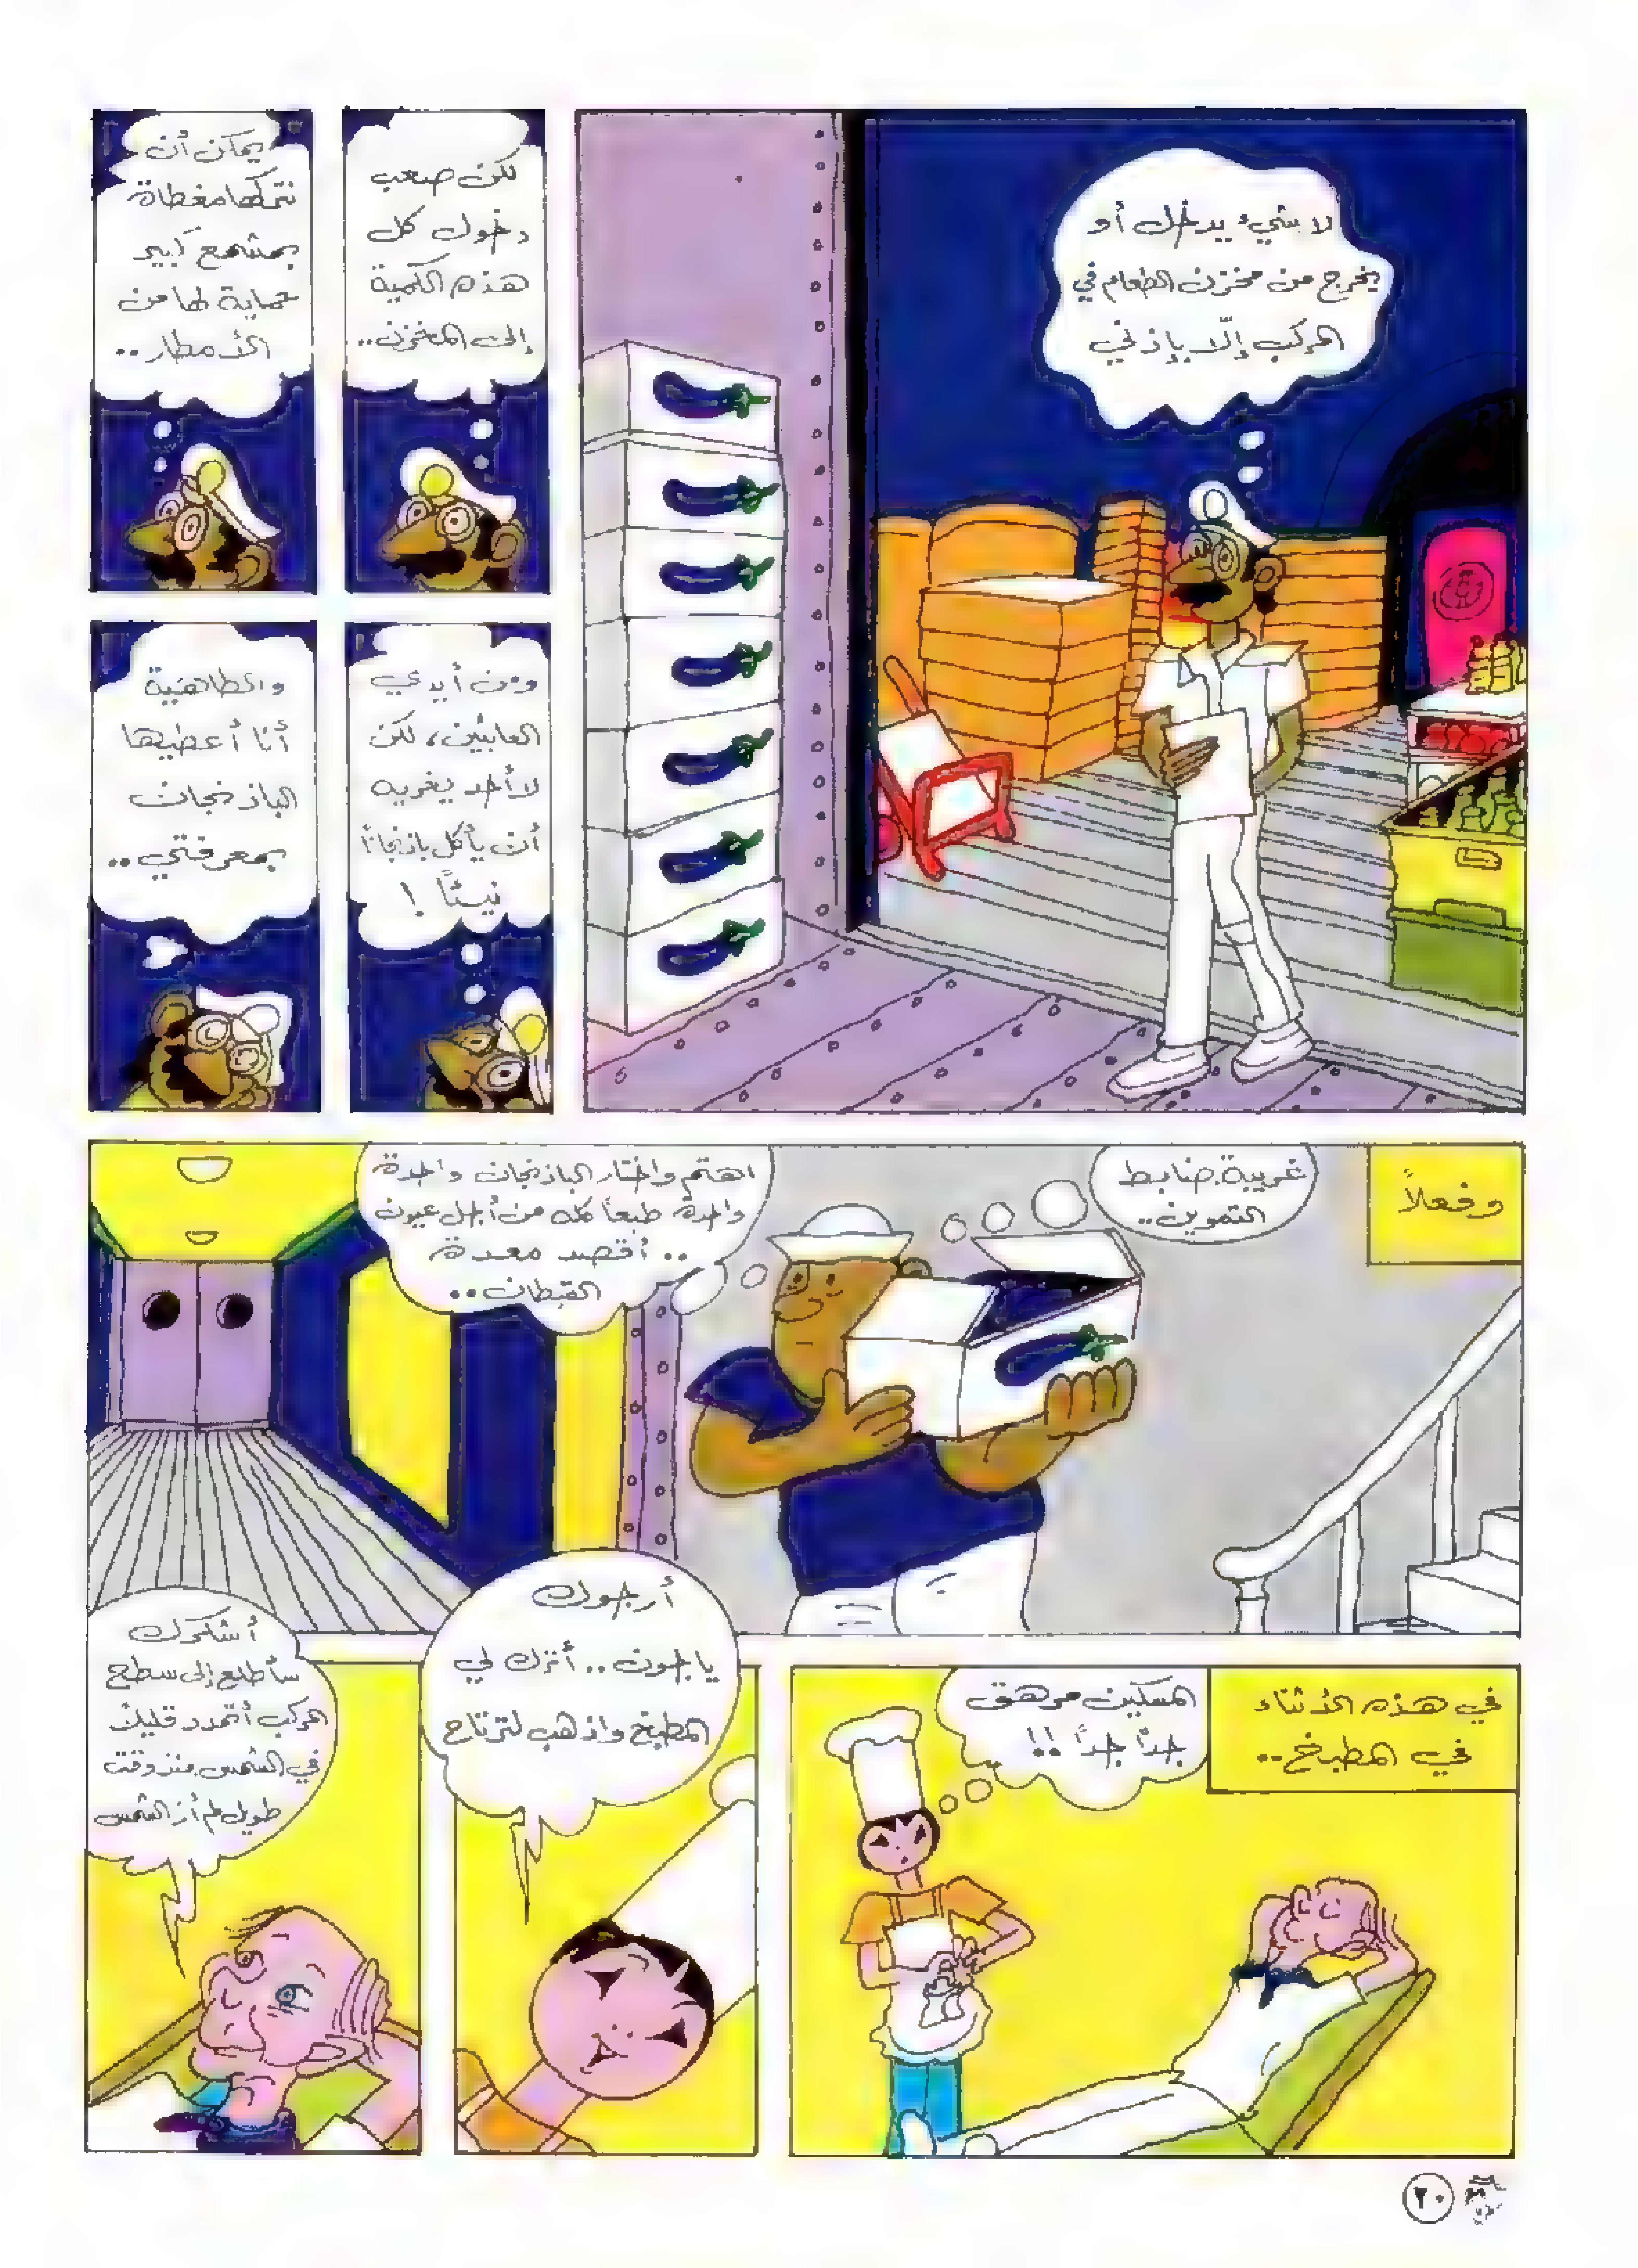 لا شيء يدخل أو
يخرج من مخزن الطعام في
المركب إلّا بإذني
لكن صعب
دخول كل
هذه الكمية
إلى المخزن..
يمكن أن
نتركها مغطاة
بمشمع كبير
حماية لها من
الأمطار..
ومن أيدي
العابثين، لكن
لا أحد يغريه
أن يأكل باذنجاناً
نيئاً!
والطاهية
أنا أعطيها
الباذنجان
بمعرفتي..
وفعلاً
غريبة. ضابط
التموين..
اهتم واختار الباذنجان واحدة
واحدة، طبعاً كله من أجل عيون
.. أقصد معدة
القبطان..
في هذه الأثناء
في المطبخ..
المسكين مرهق
جداً جداً!!
أرجوك
يا جون.. أترك لي
المطبخ واذهب لترتاح
أشكرك
سأطلع إلى سطح
المركب أتمدد قليلاً
في الشمس. منذ وقت
طويل لم أر الشمس
٢٠